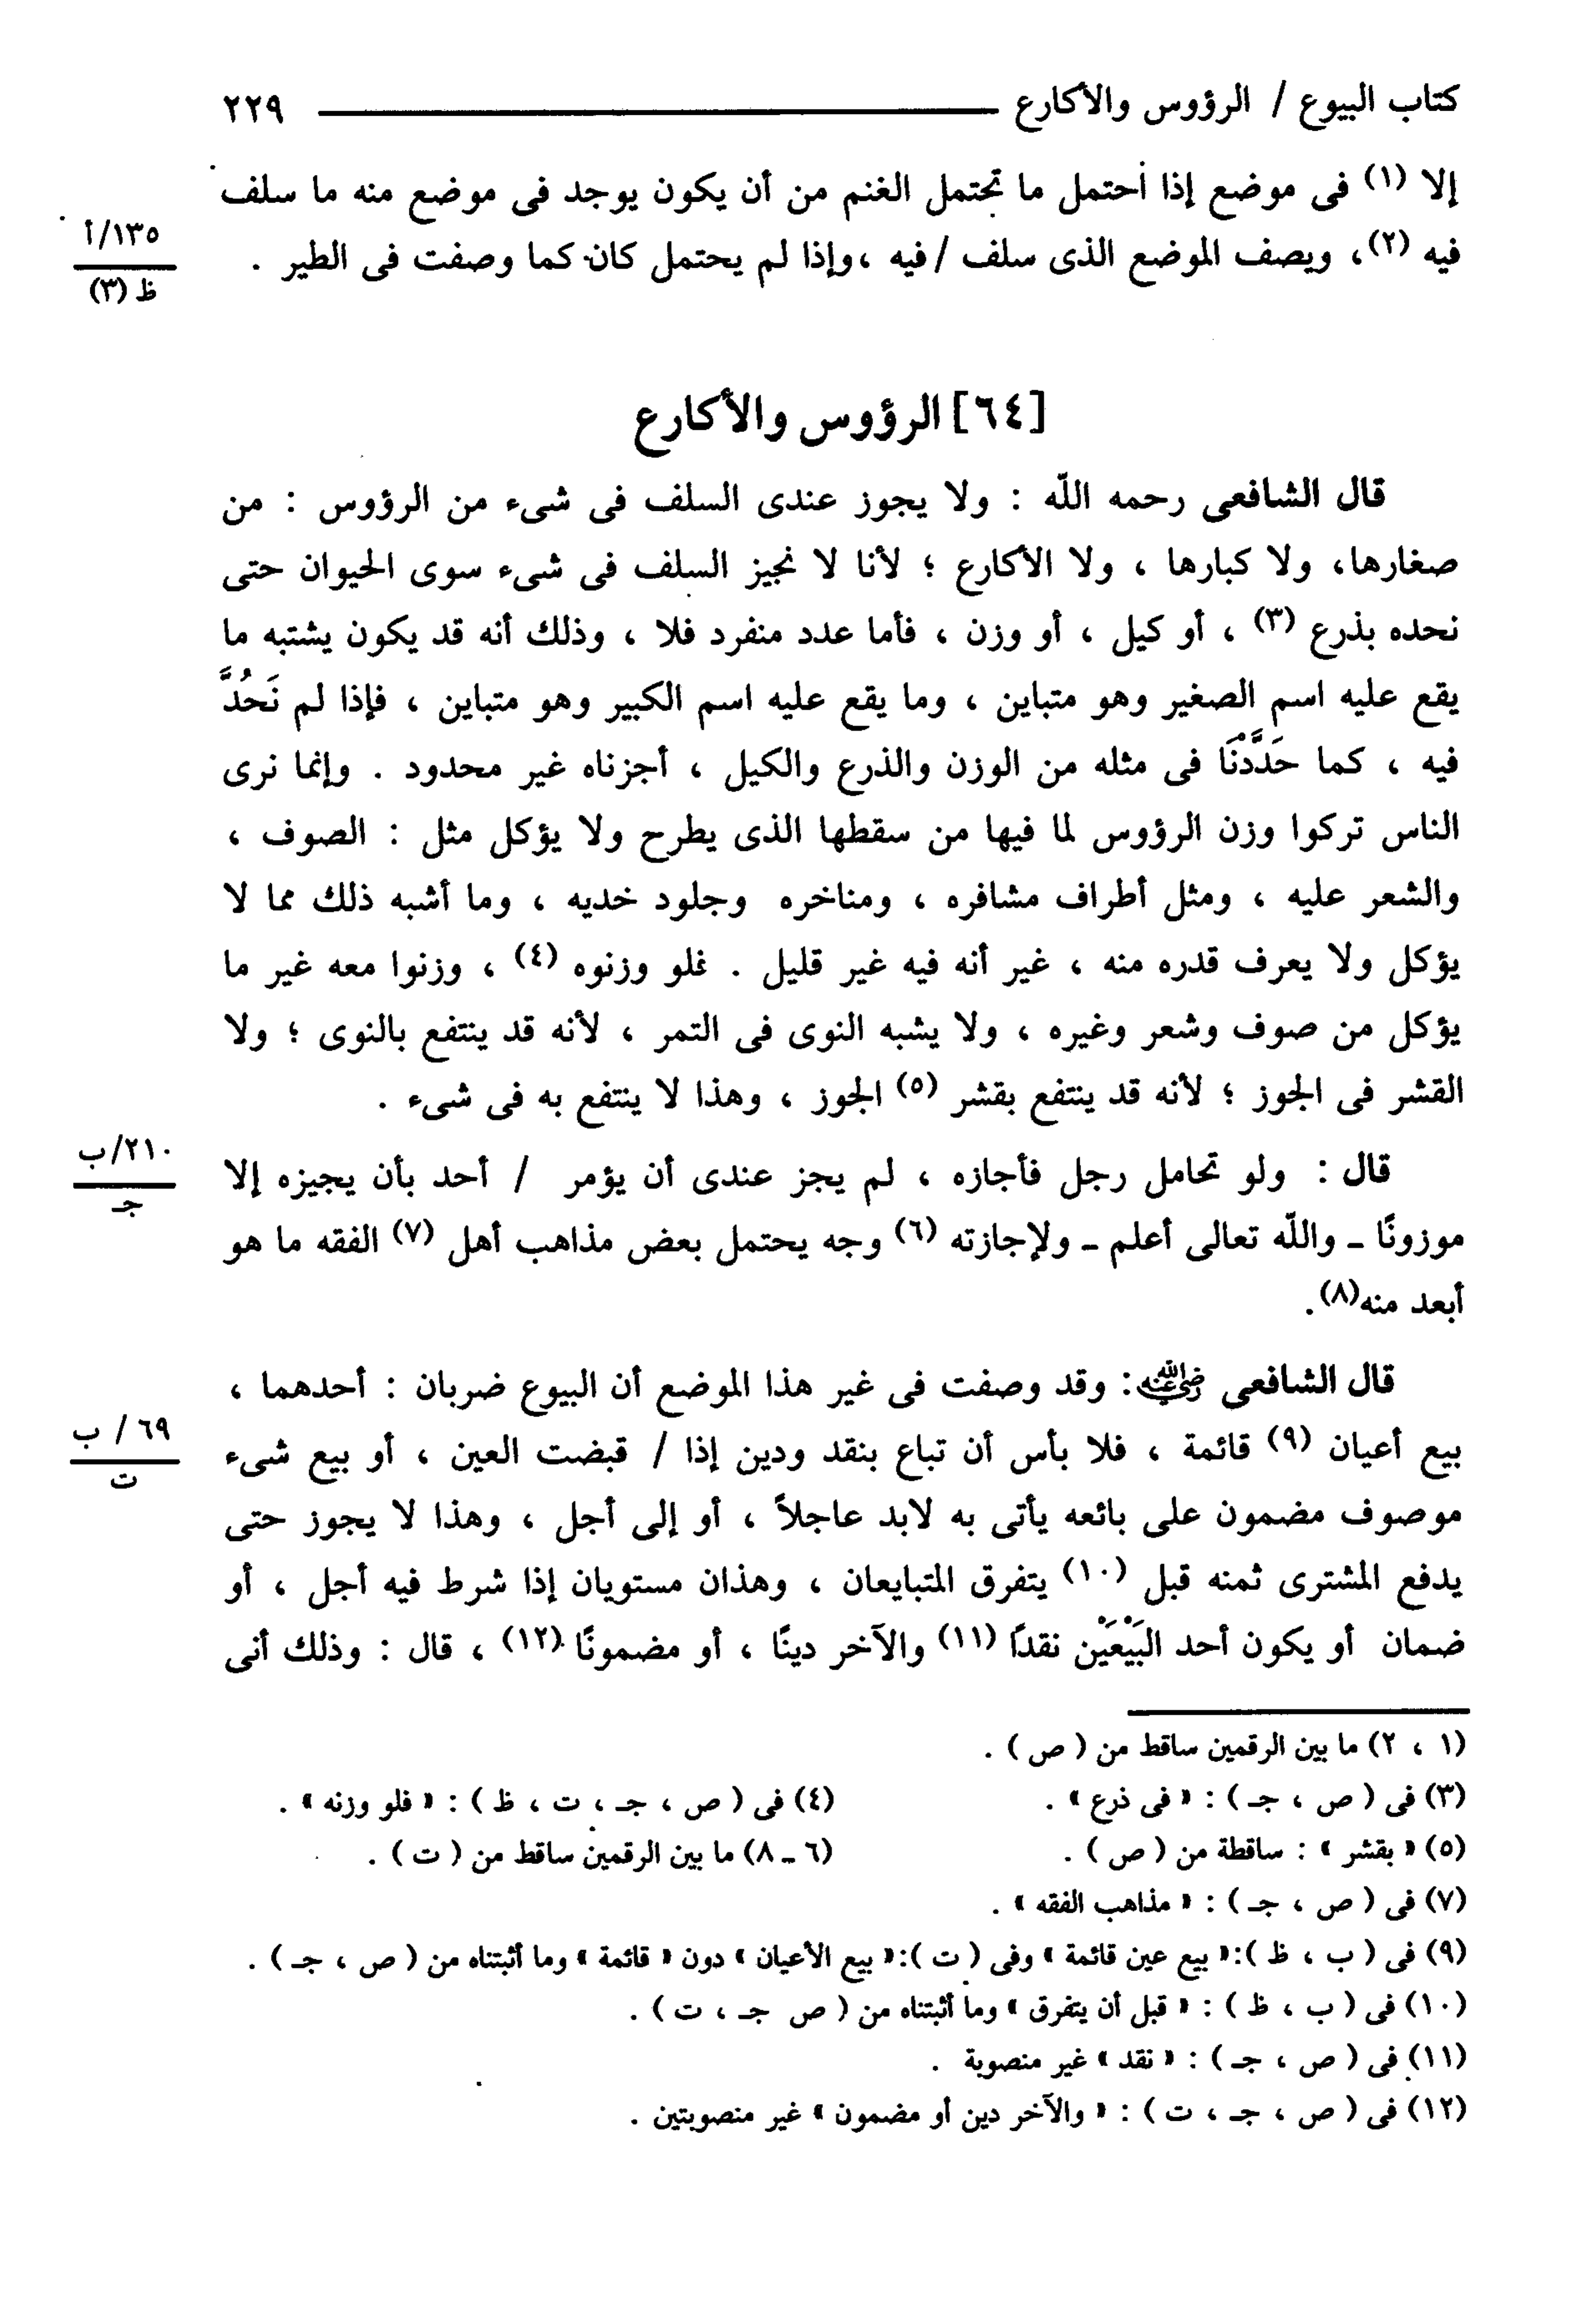 كتاب البيوع / الرؤوس والأكارع ـــــ ٢٢٩
إلا (١) فى موضع إذا احتمل ما تحتمل الغنم من أن يكون يوجد فى موضع منه ما سلف
فيه (٢)، ويصف الموضع الذى سلف / فيه ، وإذا لم يحتمل كان كما وصفت فى الطير .
١٣٥/أ
ظ (٣)
[٦٤] الرؤوس والأكارع
قال الشافعى رحمه اللّه : ولا يجوز عندى السلف فى شىء من الرؤوس : من
صغارها، ولا كبارها ، ولا الأكارع ؛ لأنا لا نجيز السلف فى شىء سوى الحيوان حتى
نحده بذرع (٣) ، أو كيل ، أو وزن ، فأما عدد منفرد فلا ، وذلك أنه قد يكون يشتبه ما
يقع عليه اسم الصغير وهو متباين ، وما يقع عليه اسم الكبير وهو متباين ، فإذا لم نَحُدَّ
فيه ، كما حَدَّدْنَا فى مثله من الوزن والذرع والكيل ، أجزناه غير محدود . وإنما نرى
الناس تركوا وزن الرؤوس لما فيها من سقطها الذى يطرح ولا يؤكل مثل : الصوف ،
والشعر عليه ، ومثل أطراف مشافره ، ومناخره وجلود خديه ، وما أشبه ذلك مما لا
يؤكل ولا يعرف قدره منه ، غير أنه فيه غير قليل . فلو وزنوه (٤) ، وزنوا معه غير ما
يؤكل من صوف وشعر وغيره ، ولا يشبه النوى فى التمر ، لأنه قد ينتفع بالنوى ؛ ولا
القشر فى الجوز ؛ لأنه قد ينتفع بقشر (٥) الجوز ، وهذا لا ينتفع به فى شىء .
قال : ولو تحامل رجل فأجازه ، لم يجز عندى أن يؤمر / أحد بأن يجيزه إلا
٢١٠/ب
جـ
موزونًا ـ واللّه تعالى أعلم ـ ولإجازته (٦) وجه يحتمل بعض مذاهب أهل (٧) الفقه ما هو
أبعد منه(٨).
قال الشافعى رضي الله عنه: وقد وصفت فى غير هذا الموضع أن البيوع ضربان : أحدهما ،
بيع أعيان (٩) قائمة ، فلا بأس أن تباع بنقد ودين إذا / قبضت العين ، أو بيع شىء
٦٩ / ب
ت
موصوف مضمون على بائعه يأتى به لابد عاجلاً ، أو إلى أجل ، وهذا لا يجوز حتى
يدفع المشترى ثمنه قبل (١٠) يتفرق المتبايعان ، وهذان مستويان إذا شرط فيه أجل ، أو
ضمان أو يكون أحد البَيْعَيْن نقدًا (١١) والآخر دينًا ، أو مضمونًا (١٢) ، قال : وذلك أنى
(١ ، ٢) ما بين الرقمين ساقط من ( ص ) .
(٣) فى ( ص ، جـ ) : « فى ذرع » . (٤) فى ( ص ، جـ ، ت ، ظ ) : « فلو وزنه » .
(٥) « بقشر » : ساقطة من ( ص ) . (٦ ـ ٨) ما بين الرقمين ساقط من ( ت ) .
(٧) فى ( ص ، جـ ) : « مذاهب الفقه » .
(٩) فى ( ب ، ظ ):« بيع عين قائمة » وفى ( ت ):« بيع الأعيان » دون « قائمة » وما أثبتناه من ( ص ، جـ ) .
(١٠) فى ( ب ، ظ ) : « قبل أن يتفرق » وما أثبتناه من ( ص جـ ، ت ) .
(١١) فى ( ص ، جـ ) : « نقد » غير منصوبة .
(١٢) فى ( ص ، جـ ، ت ) : « والآخر دين أو مضمون » غير منصوبتين .